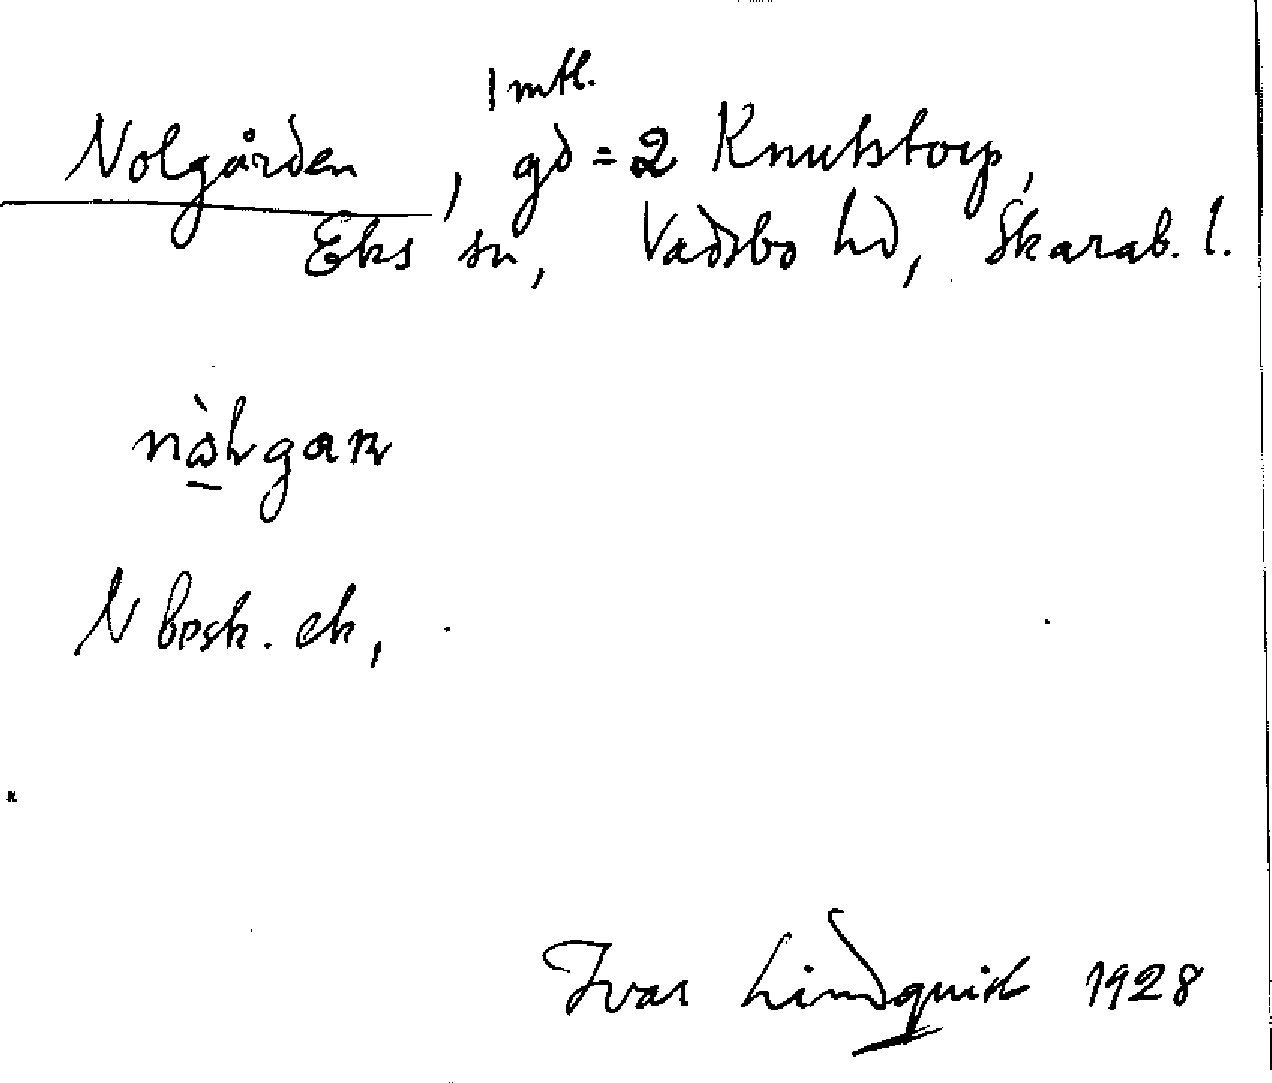 1 mtl.
Nolgården, gd = 2 Knutstorp,
Eks sn, Vadsbo hd, Skarab. l.
N besk. ek,
Ivar Lindquist 1928